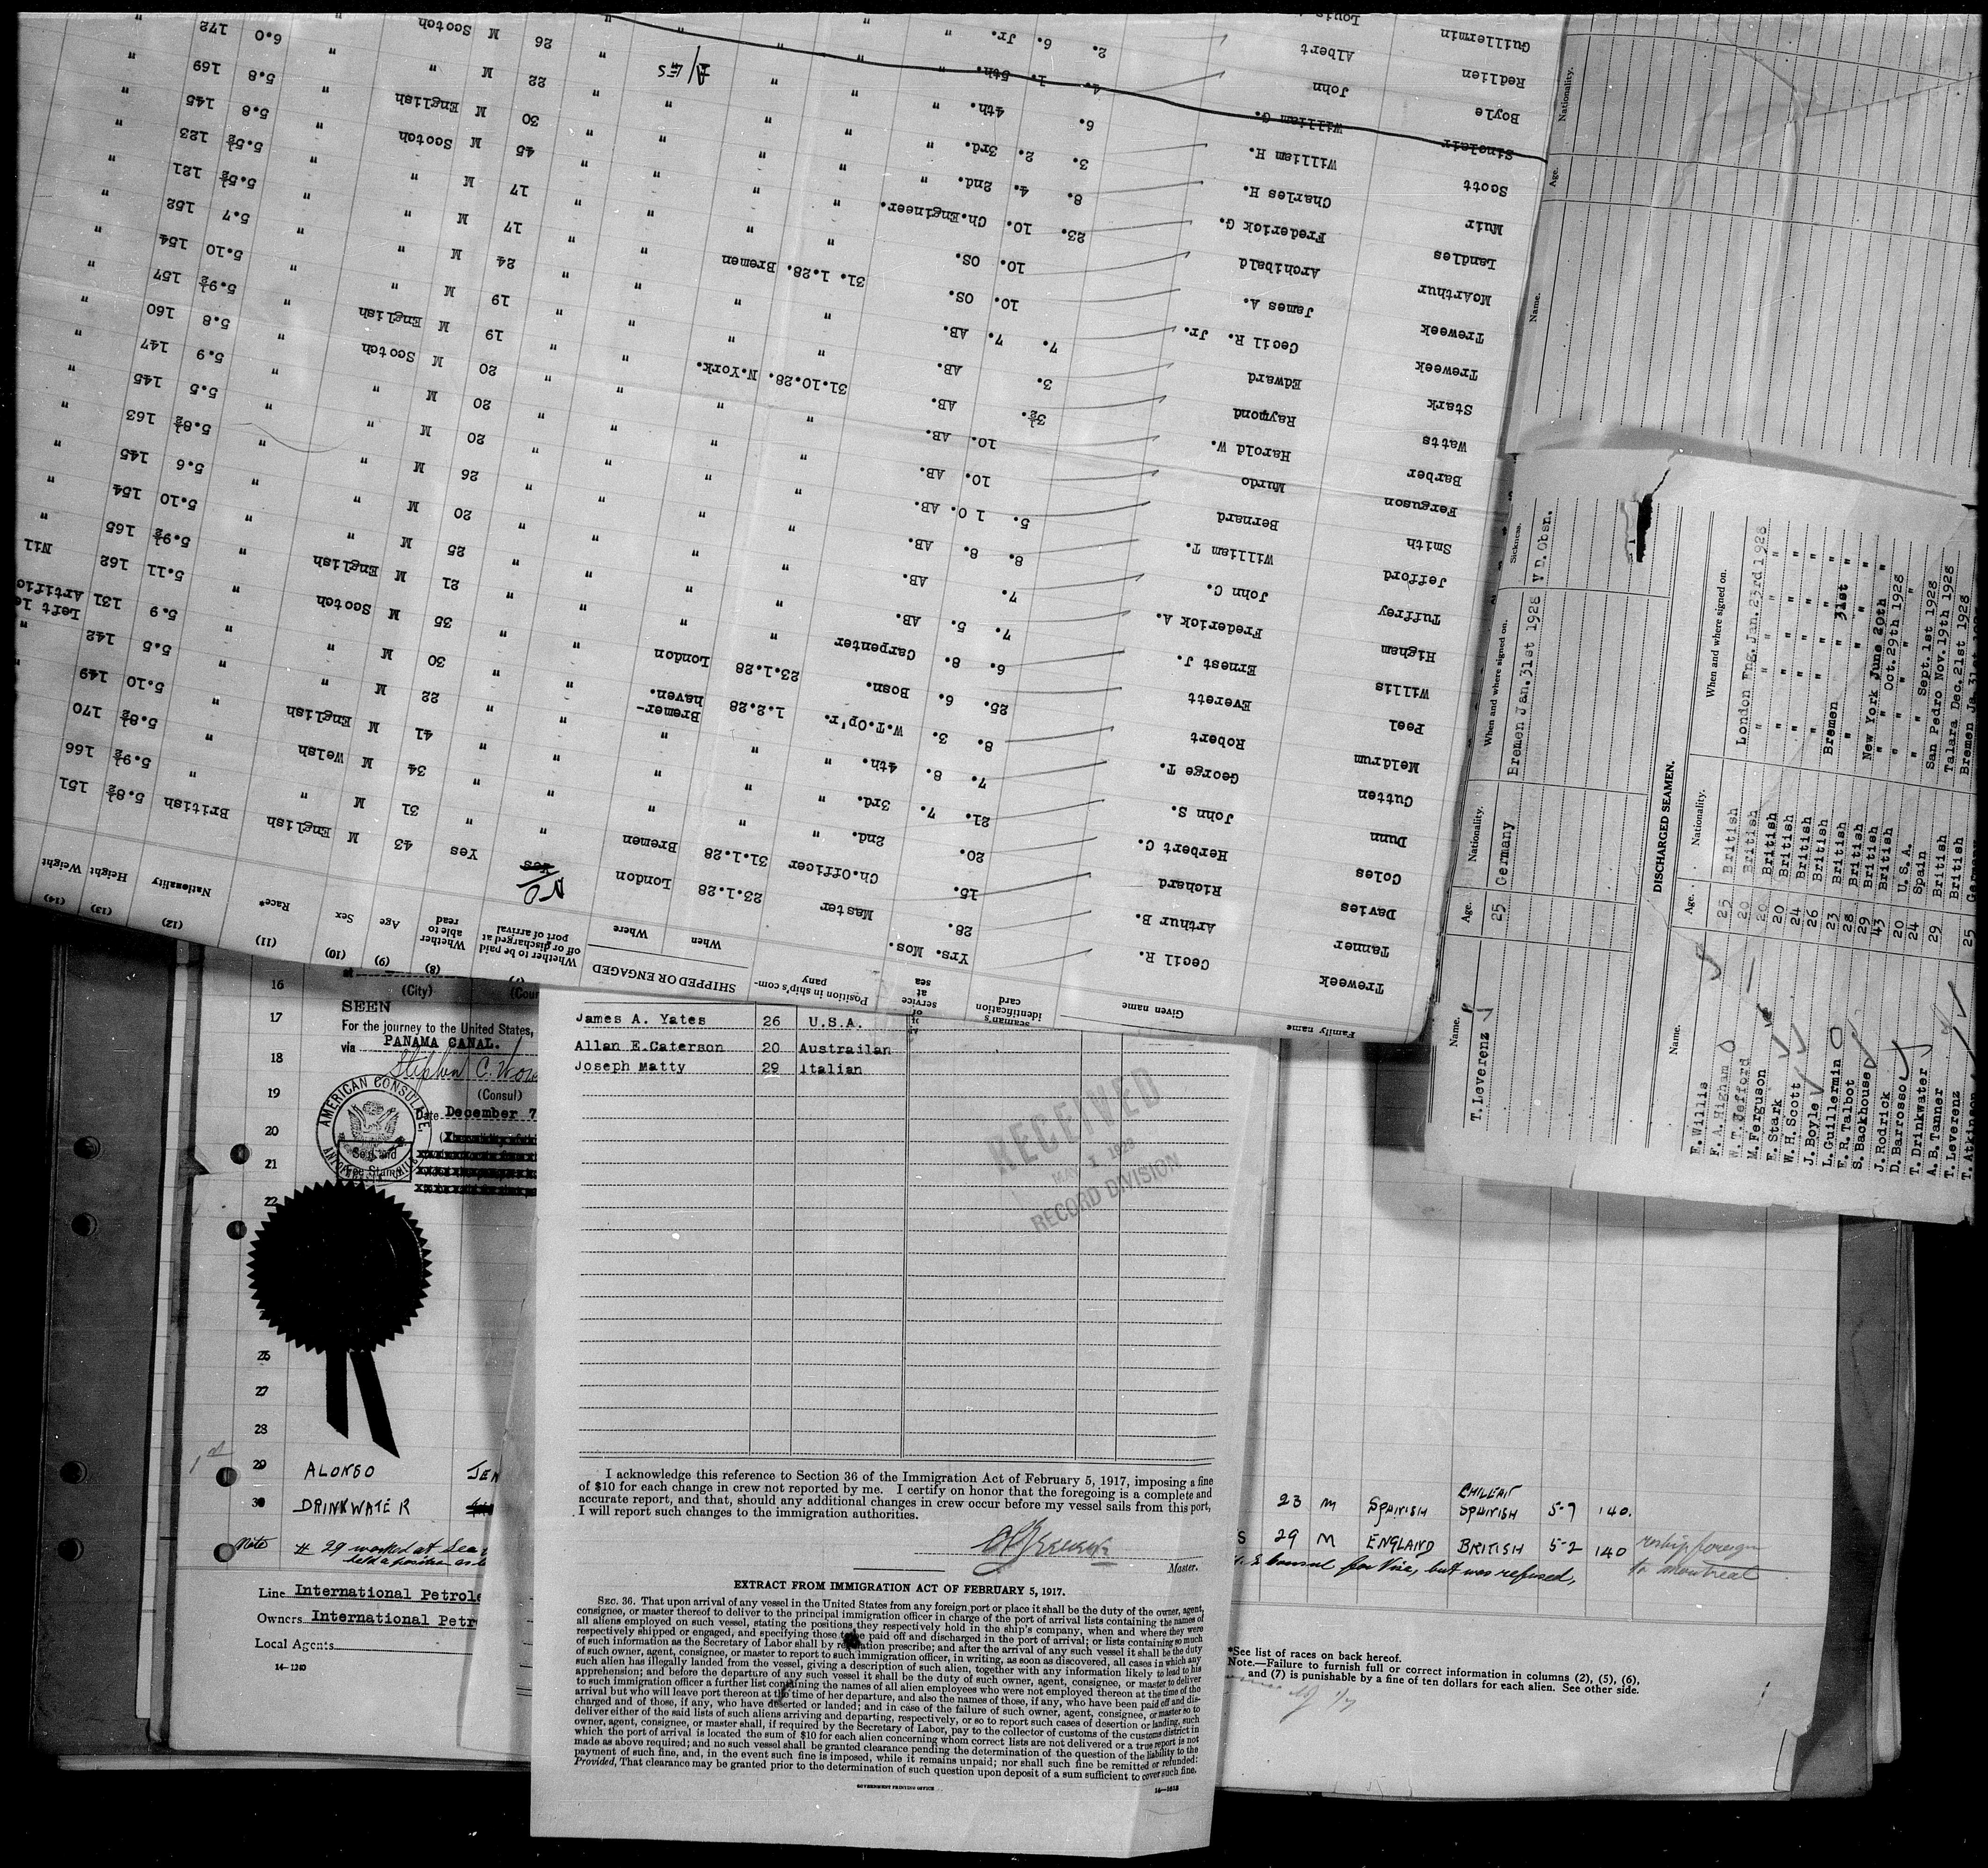 Family name Given name Seaman's identification card service at sea Position in ship's company SHIPPED OR ENGAGED When Where Whether to be paid off or discharged at port of arrival Whether able to read Age Sex Race* Nationality Height Weight
(8) (9) (10) (11) (12) (13) (14)
Yrs. Mos.
Treweek Cecil R. 28. Master 23.1.28 London Yes No Yes 43 M English British 5.8½ 151
Tanner Arthur B. 15. Ch.Officer 31.1.28 Bremen " " 31 M " " 5.9½ 166
Davies Richard 20. 2nd. " " " " " 34 M Welsh " 5.8½ 170
Coles Herbert C. 21. 7. 3rd. " " " " " 41 M English " 5.10 149
Dunn John S. 7. 8. 4th. " " " " " 22 M " " 5.5 142 "
Cutten George T. 8. 3. W.T.Op'r. 1.2.28 Bremer-haven. " " 30 M " " 5.9 131 Left le Artific
Meldrum Robert 25. 6. Bosn. 23.1.28 London " " 35 M Scotch " 5.11 162 Nil
Peel Everett 6. 8. Carpenter " " " " 21 M English " 5.9½ 165 "
Willis Ernest J. 7. 5. AB. " " " " 25 M " " 5.10 154 "
Higham Frederick A. 7. AB. " " " " 20 M " " 5.6 145 "
Tuffrey John C. 8. 8. AB. " " " " 26 M " " 5.8½ 163 "
Jefford William T. 5. 10. AB. " " " " 20 M " " 5.5 145 "
Smith Bernard 10. AB. " " " " 20 M " " 5.9 147 "
Ferguson Murdo 10. AB. " " " " 20 M Scotch " 5.8 160 "
Barber Harold W. 3½. AB. " " " " 19 M English " 5.9½ 157 "
Watts Raymond 3. AB. 31.10.28. N.York. " " 19 M " " 5.10 154 "
Stark Edward 7. 7. AB. " " " " 24 M " " 5.7 152 "
Treweek Cecil R. Jr. 10. OS. " " " " 17 M " " 5.5½ 121 "
Treweek James A. 10. OS. 31. 1.28. Bremen " " 17 M " " 5.5½ 123 "
McArthur Archibald 23. 10. Ch.Engineer. " " " " 45 M Scotch " 5.8 145 "
Landles Frederick G. 8. 4. 2nd. " " " " " 30 M English " 5.8 169 "
Muir Charles H. 3. 2. 3rd. " " " " " 22 M " " 6.0 172 "
Scott William H. 6. 4th. " " " " " 26 M Scotch
Sinclair William G. 4. 1. 5th. "
Boyle John 2. 6. Jr. "
Redlien Albert
Guillermin Louis
Name. Age. Nationality.
Name. Age. Nationality. When and where signed on. Sickness.
T. Leverenz 25 Germany Bremen Jan. 31st 1928 V D. Obsn.
DISCHARGED SEAMEN.
Name. Age. Nationality. When and where signed on.
E. Willis 25 British London Eng. Jan. 23rd 1928
F. A. Higham 20 British " " " "
W. T. Jefford 20 British " " " "
M. Ferguson 20 British " " " "
E. Stark 24 British " " " "
W. H. Scott 26 British
J. Boyle 23 British Bremen " 31st "
L. Guillermin 28 British " " "
E. R. Talbot 29 British New York June 20th "
S. Backhouse 43 British " " Oct. 29th 1928
J. Rodrick 20 U.S.A.
D. Barrosso 24 Spain " Sept. 1st 1928
T. Drinkwater 29 British San Pedro Nov. 19th 1928
A. B. Tanner British Talara Dec. 21st 1928
T. Leverenz 25 Bremen
T. Atkinson
16
(City)
17 SEEN
For the journey to the United States,
via PANAMA CANAL.
18
(Consul)
19 Date December 7
AMERICAN CONSULATE
20
21
22
26
27
28
29 ALONSO
30 DRINKWATER
Note # 29 worked at Sea
held a position as
Line International Petrole
Owners International Petr
Local Agents
14—1240
James A. Yates 26 U.S.A.
Allan E.Caterson 20 Austrailan
Joseph Matty 29 Italian
RECEIVED
MAY 1 1929
RECORD DIVISION
I acknowledge this reference to Section 36 of the Immigration Act of February 5, 1917, imposing a fine
of $10 for each change in crew not reported by me. I certify on honor that the foregoing is a complete and
accurate report, and that, should any additional changes in crew occur before my vessel sails from this port,
I will report such changes to the immigration authorities.
Master.
EXTRACT FROM IMMIGRATION ACT OF FEBRUARY 5, 1917.
SEC. 36. That upon arrival of any vessel in the United States from any foreign port or place it shall be the duty of the owner, agent,
consignee, or master thereof to deliver to the principal immigration officer in charge of the port of arrival lists containing the names of
all aliens employed on such vessel, stating the positions they respectively hold in the ship's company, when and where they were
respectively shipped or engaged, and specifying those to be paid off and discharged in the port of arrival; or lists containing so much
of such information as the Secretary of Labor shall by regulation prescribe; and after the arrival of any such vessel it shall be the duty
of such owner, agent, consignee, or master to report to such immigration officer, in writing, as soon as discovered, all cases in which any
such alien has illegally landed from the vessel, giving a description of such alien, together with any information likely to lead to his
apprehension; and before the departure of any such vessel it shall be the duty of such owner, agent, consignee, or master to deliver
to such immigration officer a further list containing the names of all alien employees who were not employed thereon at the time of the
arrival but who will leave port thereon at the time of her departure, and also the names of those, if any, who have been paid off and dis-
charged and of those, if any, who have deserted or landed; and in case of the failure of such owner, agent, consignee, or master so to
deliver either of the said lists of such aliens arriving and departing, respectively, or so to report such cases of desertion or landing, such
owner, agent, consignee, or master shall, if required by the Secretary of Labor, pay to the collector of customs of the customs district in
which the port of arrival is located the sum of $10 for each alien concerning whom correct lists are not delivered or a true report is not
made as above required; and no such vessel shall be granted clearance pending the determination of the question of the liability to the
payment of such fine, and, in the event such fine is imposed, while it remains unpaid; nor shall such fine be remitted or refunded:
Provided, That clearance may be granted prior to the determination of such question upon deposit of a sum sufficient to cover such fine.
GOVERNMENT PRINTING OFFICE
CHILEAN
23 M SPANISH SPANISH 5-7 140.
S 29 M ENGLAND BRITISH 5-2 140 reship foreign
Consul for Visa, but was refused, to montreal
*See list of races on back hereof.
Note.—Failure to furnish full or correct information in columns (2), (5), (6),
and (7) is punishable by a fine of ten dollars for each alien. See other side.